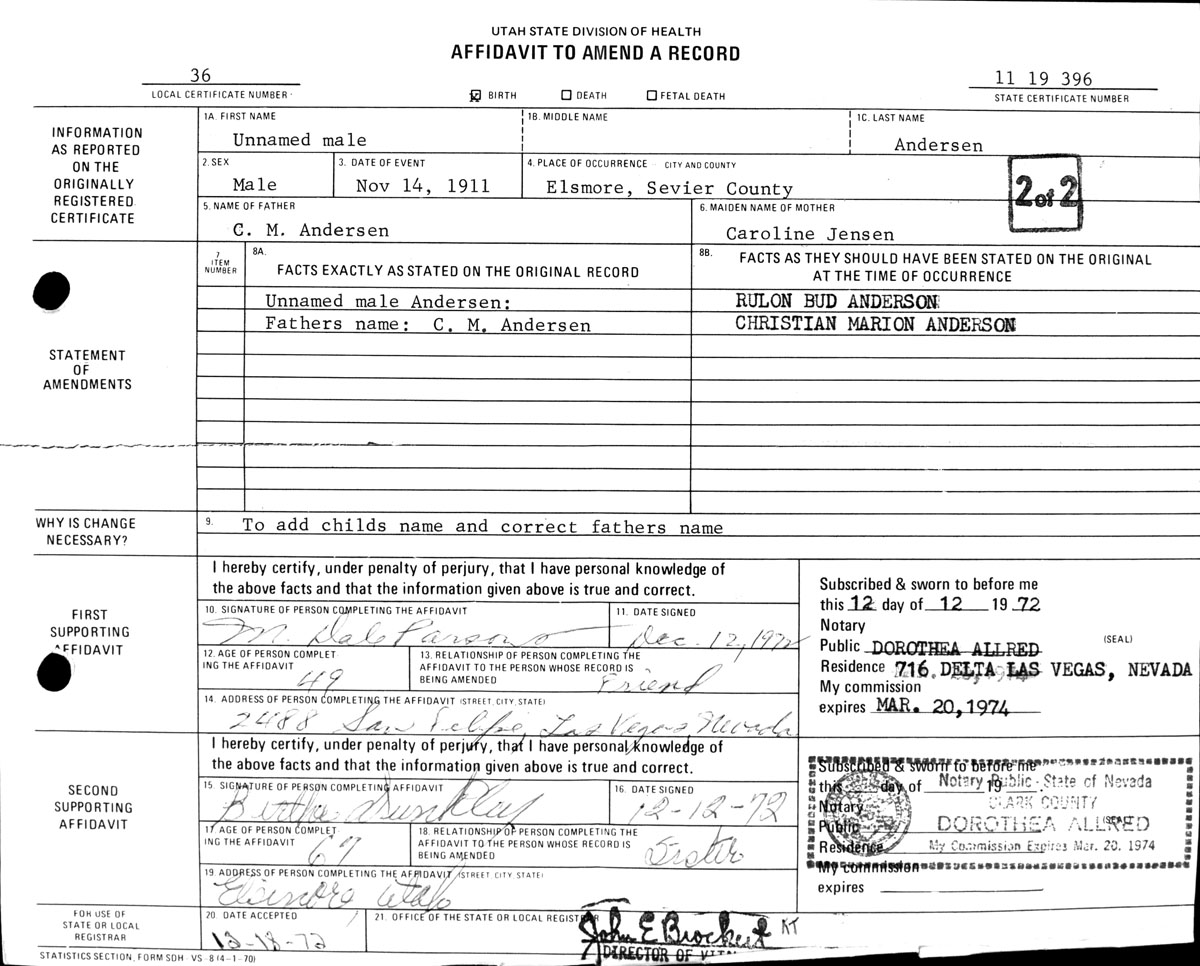 UTAH STATE DIVISION OF HEALTH
AFFIDAVIT TO AMEND A RECORD
36
LOCAL CERTIFICATE NUMBER
☒ BIRTH ☐ DEATH ☐ FETAL DEATH
11 19 396
STATE CERTIFICATE NUMBER
INFORMATION
AS REPORTED
ON THE
ORIGINALLY
REGISTERED
CERTIFICATE
1A. FIRST NAME 1B. MIDDLE NAME 1C. LAST NAME
Unnamed male Andersen
2. SEX 3. DATE OF EVENT 4. PLACE OF OCCURRENCE - CITY AND COUNTY
Male Nov 14, 1911 Elsmore, Sevier County
2 of 2
5. NAME OF FATHER 6. MAIDEN NAME OF MOTHER
C. M. Andersen Caroline Jensen
STATEMENT
OF
AMENDMENTS
7 ITEM NUMBER
8A. FACTS EXACTLY AS STATED ON THE ORIGINAL RECORD
8B. FACTS AS THEY SHOULD HAVE BEEN STATED ON THE ORIGINAL
AT THE TIME OF OCCURRENCE
Unnamed male Andersen: RULON BUD ANDERSON
Fathers name: C. M. Andersen CHRISTIAN MARION ANDERSON
WHY IS CHANGE
NECESSARY?
9. To add childs name and correct fathers name
FIRST
SUPPORTING
AFFIDAVIT
I hereby certify, under penalty of perjury, that I have personal knowledge of
the above facts and that the information given above is true and correct.
10. SIGNATURE OF PERSON COMPLETING THE AFFIDAVIT 11. DATE SIGNED
M. Dale Parsons Dec. 12, 1972
12. AGE OF PERSON COMPLET-
ING THE AFFIDAVIT
49
13. RELATIONSHIP OF PERSON COMPLETING THE
AFFIDAVIT TO THE PERSON WHOSE RECORD IS
BEING AMENDED
Friend
14. ADDRESS OF PERSON COMPLETING THE AFFIDAVIT (STREET, CITY, STATE)
2488 San Felipe, Las Vegas Nevada
Subscribed & sworn to before me
this 12 day of 12 19 72
Notary
Public DOROTHEA ALLRED (SEAL)
Residence 716 DELTA LAS VEGAS, NEVADA
My commission
expires MAR. 20, 1974
SECOND
SUPPORTING
AFFIDAVIT
I hereby certify, under penalty of perjury, that I have personal knowledge of
the above facts and that the information given above is true and correct.
15 SIGNATURE OF PERSON COMPLETING AFFIDAVIT 16. DATE SIGNED
12-12-72
17. AGE OF PERSON COMPLET-
ING THE AFFIDAVIT
67
18. RELATIONSHIP OF PERSON COMPLETING THE
AFFIDAVIT TO THE PERSON WHOSE RECORD IS
BEING AMENDED
Sister
19 ADDRESS OF PERSON COMPLETING THE AFFIDAVIT (STREET, CITY, STATE)
Elsinore Utah
Subscribed & sworn to before me
this day of 19
Notary
Public (SEAL)
Residence
My commission
expires
Notary Public - State of Nevada
CLARK COUNTY
DOROTHEA ALLRED
My Commission Expires Mar. 20, 1974
FOR USE OF
STATE OR LOCAL
REGISTRAR
20. DATE ACCEPTED 21. OFFICE OF THE STATE OR LOCAL REGISTRAR
12-18-72 John E Brockert KT
DIRECTOR OF
STATISTICS SECTION, FORM SDH - VS - 8 (4-1-70)